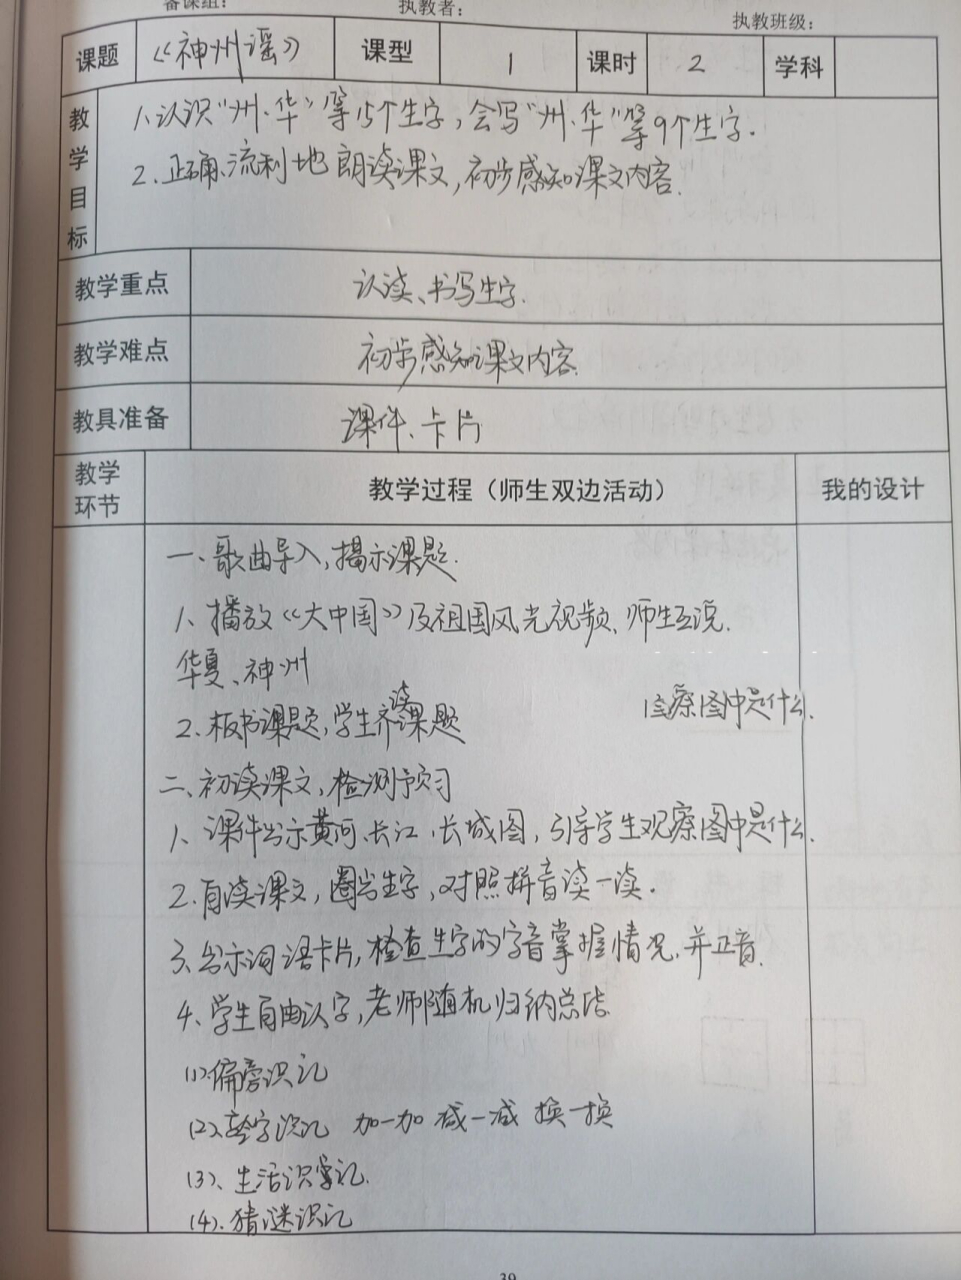 备课组：	执教者：	执教班级：
课题	《神州谣》	课型	1	课时	2	学科
教学目标	1、认识“州、华”等15个生字，会写“州、华”等9个生字.
2、正确、流利地朗读课文，初步感知课文内容.
教学重点	认读、书写生字.
教学难点	初步感知课文内容.
教具准备	课件、卡片
教学环节	教学过程（师生双边活动）	我的设计
一、歌曲导入，揭示课题.
1、播放《大中国》及祖国风光视频、师生互说.
华夏、神州
2、板书课题，学生齐读课题
察图中是什么.
二、初读课文，检测予习
1、课件出示黄河、长江、长城图，引导学生观察图中是什么.
2、自读课文，圈出生字，对照拼音读一读.
3、出示词语卡片，检查生字的字音掌握情况，并正音.
4、学生自由认字，老师随机归纳总结.
(1)、偏旁识记
(2)、字识记 加一加 减一减 换一换
(3)、生活识字记.
(4)、猜谜识记
39